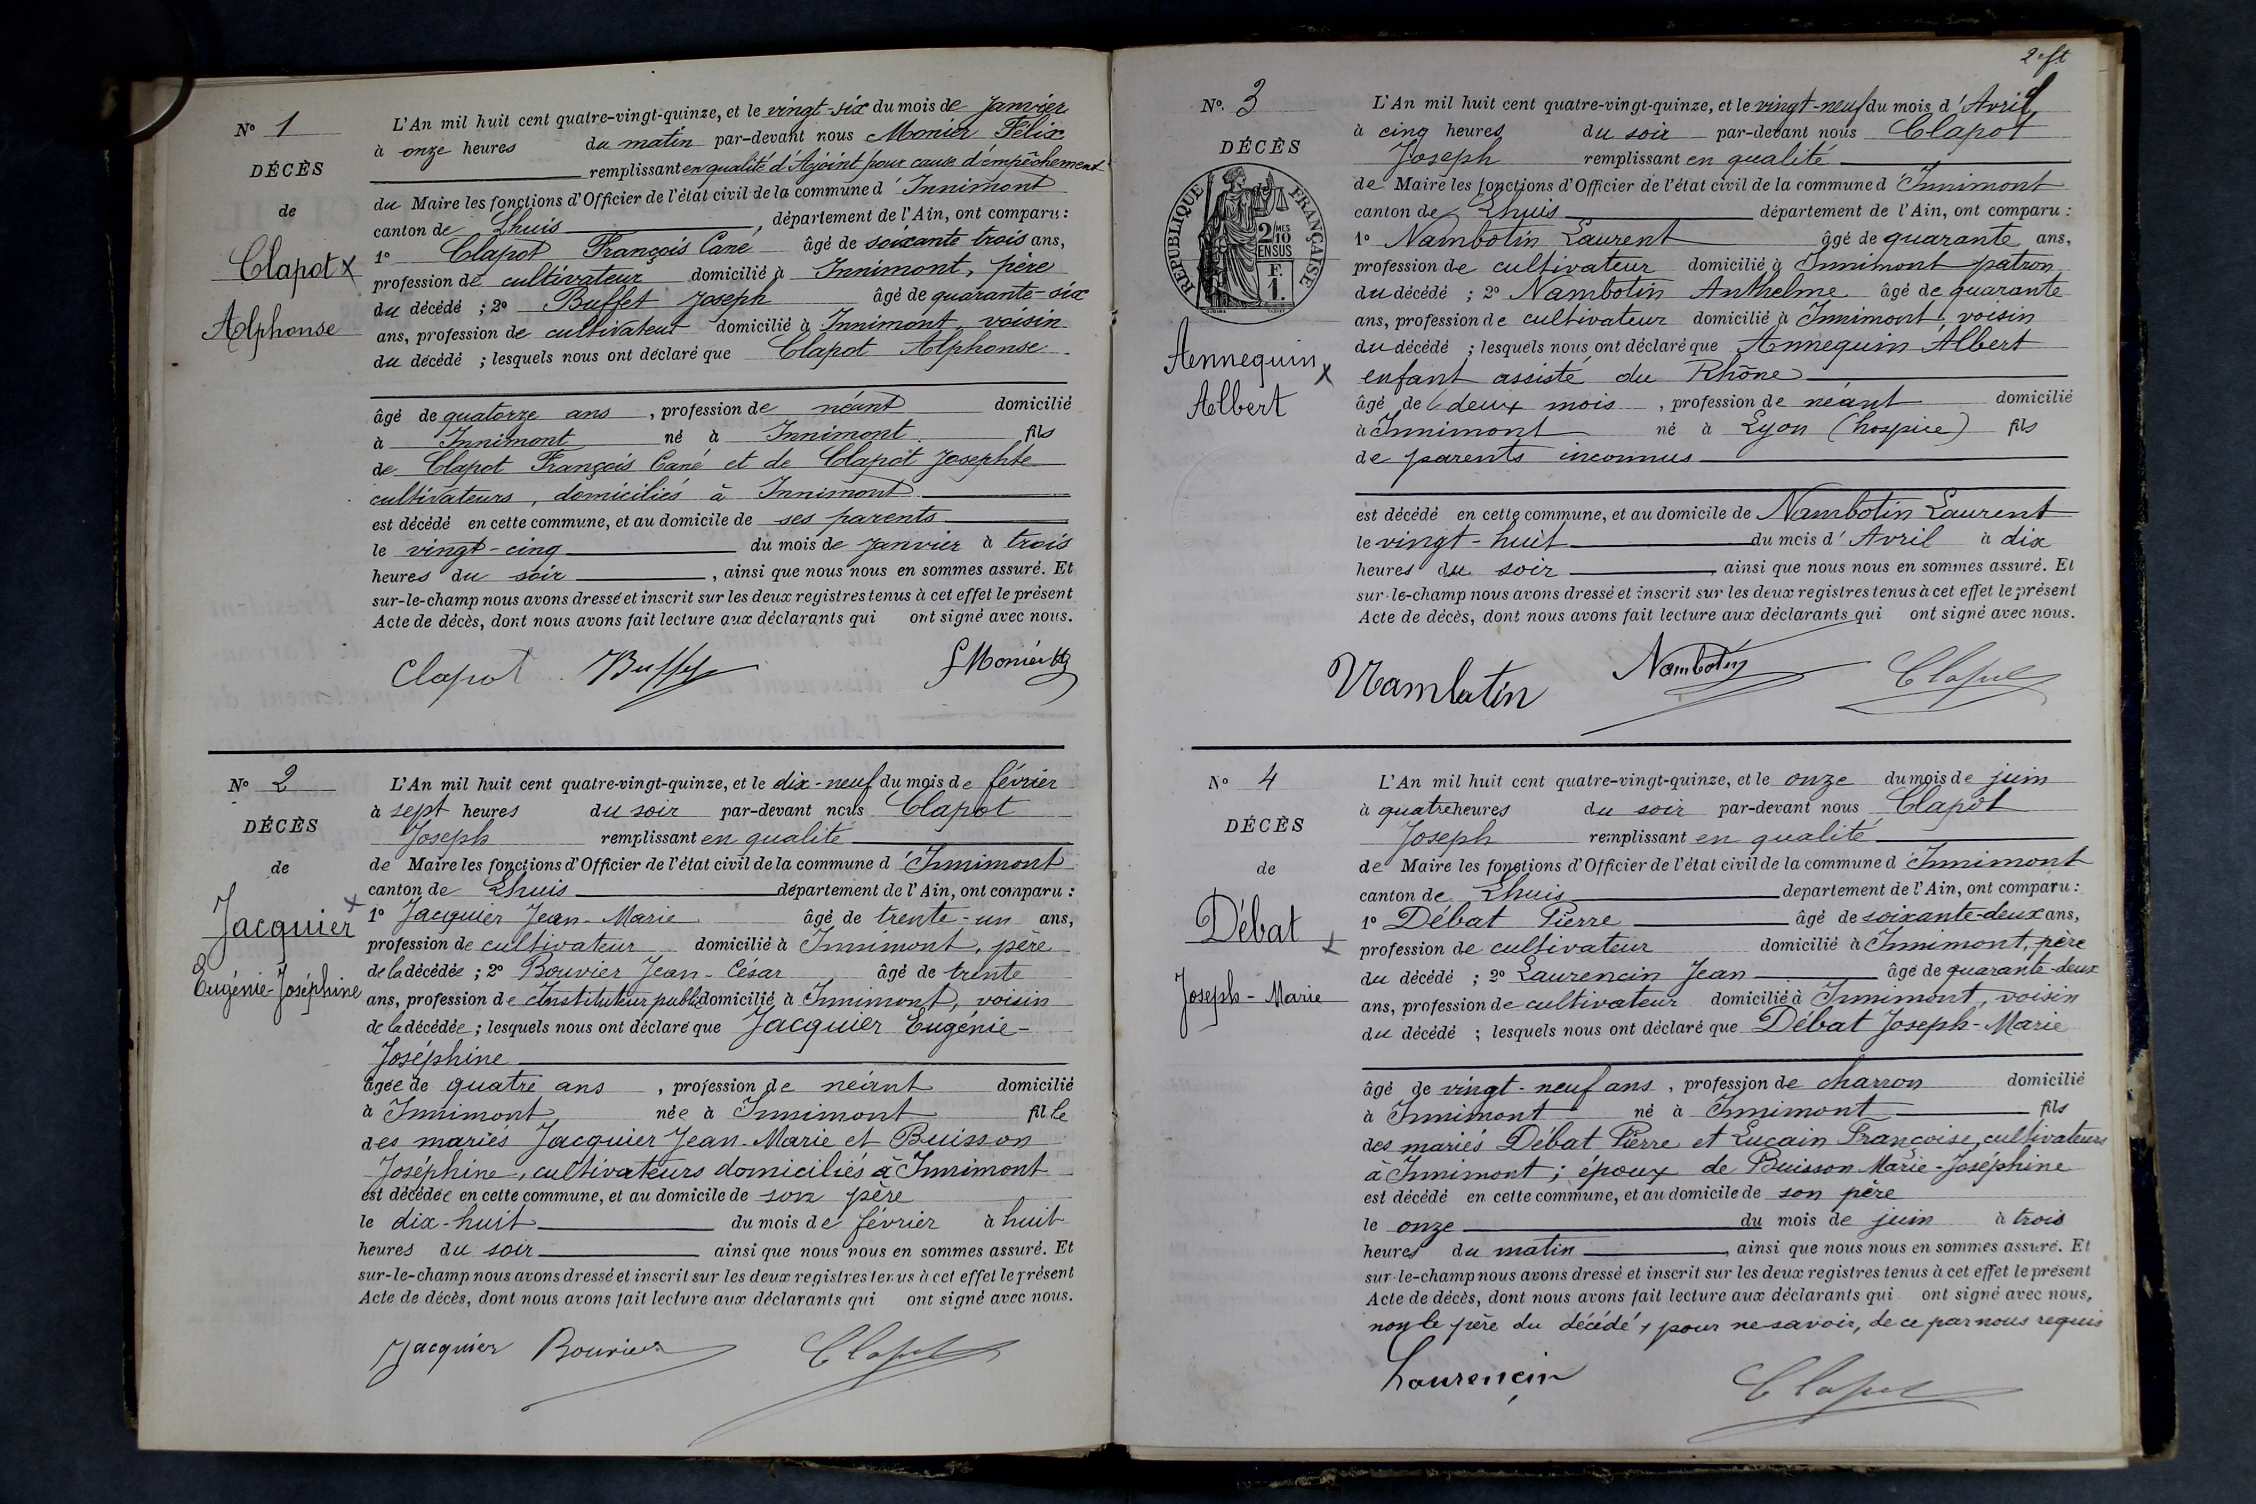 N° 1
DÉCÈS
de
Clapot x
Alphonse
L'An mil huit cent quatre-vingt-quinze, et le vingt-six du mois de Janvier
à onze heures du matin par-devant nous Monier Félix
remplissant en qualité d'Ajoint pour cause d'empêchement
du Maire les fonctions d'Officier de l'état civil de la commune d'Innimont
canton de Lhuis, département de l'Ain, ont comparu :
1° Clapot François Cané âgé de soixante trois ans,
profession de cultivateur domicilié à Innimont, père
du décédé ; 2° Buffet Joseph âgé de quarante-six
ans, profession de cultivateur domicilié à Innimont voisin
du décédé ; lesquels nous ont déclaré que Clapot Alphonse
âgé de quatorze ans, profession de néant domicilié
à Innimont né à Innimont fils
de Clapot François Cané et de Clapot Josephte
cultivateurs, domiciliés à Innimont
est décédé en cette commune, et au domicile de ses parents
le vingt-cinq du mois de Janvier à trois
heures du soir, ainsi que nous nous en sommes assuré. Et
sur-le-champ nous avons dressé et inscrit sur les deux registres tenus à cet effet le présent
Acte de décès, dont nous avons fait lecture aux déclarants qui ont signé avec nous.
Clapot Buffet f Monier
N° 2
DÉCÈS
de
Jacquier x
Eugénie-Joséphine
L'An mil huit cent quatre-vingt-quinze, et le dix-neuf du mois de février
à sept heures du soir par-devant nous Clapot
Joseph remplissant en qualité
de Maire les fonctions d'Officier de l'état civil de la commune d'Innimont
canton de Lhuis département de l'Ain, ont comparu :
1° Jacquier Jean-Marie âgé de trente-un ans,
profession de cultivateur domicilié à Innimont, père
de la décédée ; 2° Bouvier Jean-César âgé de trente
ans, profession de Instituteur public domicilié à Innimont, voisin
de la décédée ; lesquels nous ont déclaré que Jacquier Eugénie-
Joséphine
âgée de quatre ans, profession de néant domicilié
à Innimont née à Innimont fille
des mariés Jacquier Jean-Marie et Buisson
Joséphine, cultivateurs domiciliés à Innimont
est décédée en cette commune, et au domicile de son père
le dix-huit du mois de février à huit
heures du soir ainsi que nous nous en sommes assuré. Et
sur-le-champ nous avons dressé et inscrit sur les deux registres tenus à cet effet le présent
Acte de décès, dont nous avons fait lecture aux déclarants qui ont signé avec nous.
Jacquier Bouvier Clapot
N° 3
DÉCÈS
RÉPUBLIQUE FRANÇAISE
2/10 MES
EN SUS
F.
1.
Aennequin x
Albert
L'An mil huit cent quatre-vingt-quinze, et le vingt-neuf du mois d'Avril
à cinq heures du soir par-devant nous Clapot
Joseph remplissant en qualité
de Maire les fonctions d'Officier de l'état civil de la commune d'Innimont
canton de Lhuis département de l'Ain, ont comparu :
1° Nambotin Laurent âgé de quarante ans,
profession de cultivateur domicilié à Innimont patron
du décédé ; 2° Nambotin Anthelme âgé de quarante
ans, profession de cultivateur domicilié à Innimont, voisin
du décédé ; lesquels nous ont déclaré que Annequin Albert
enfant assisté du Rhône
âgé de deux mois, profession de néant domicilié
à Innimont né à Lyon (hospice) fils
de parents inconnus
est décédé en cette commune, et au domicile de Nambotin Laurent
le vingt-huit du mois d'Avril à dix
heures du soir, ainsi que nous nous en sommes assuré. Et
sur-le-champ nous avons dressé et inscrit sur les deux registres tenus à cet effet le présent
Acte de décès, dont nous avons fait lecture aux déclarants qui ont signé avec nous.
Nambotin Nambotin Clapot
N° 4
DÉCÈS
de
Débat x
Joseph-Marie
L'An mil huit cent quatre-vingt-quinze, et le onze du mois de juin
à quatre heures du soir par-devant nous Clapot
Joseph remplissant en qualité
de Maire les fonctions d'Officier de l'état civil de la commune d'Innimont
canton de Lhuis département de l'Ain, ont comparu :
1° Débat Pierre âgé de soixante-deux ans,
profession de cultivateur domicilié à Innimont, père
du décédé ; 2° Laurencin Jean âgé de quarante-deux
ans, profession de cultivateur domicilié à Innimont, voisin
du décédé ; lesquels nous ont déclaré que Débat Joseph-Marie
âgé de vingt-neuf ans, profession de charron domicilié
à Innimont né à Innimont fils
des mariés Débat Pierre et Lucain Françoise, cultivateurs
à Innimont ; époux de Buisson Marie-Joséphine
est décédé en cette commune, et au domicile de son père
le onze du mois de juin à trois
heures du matin, ainsi que nous nous en sommes assuré. Et
sur-le-champ nous avons dressé et inscrit sur les deux registres tenus à cet effet le présent
Acte de décès, dont nous avons fait lecture aux déclarants qui ont signé avec nous,
non le père du décédé, pour ne savoir, de ce par nous requis
Laurencin Clapot